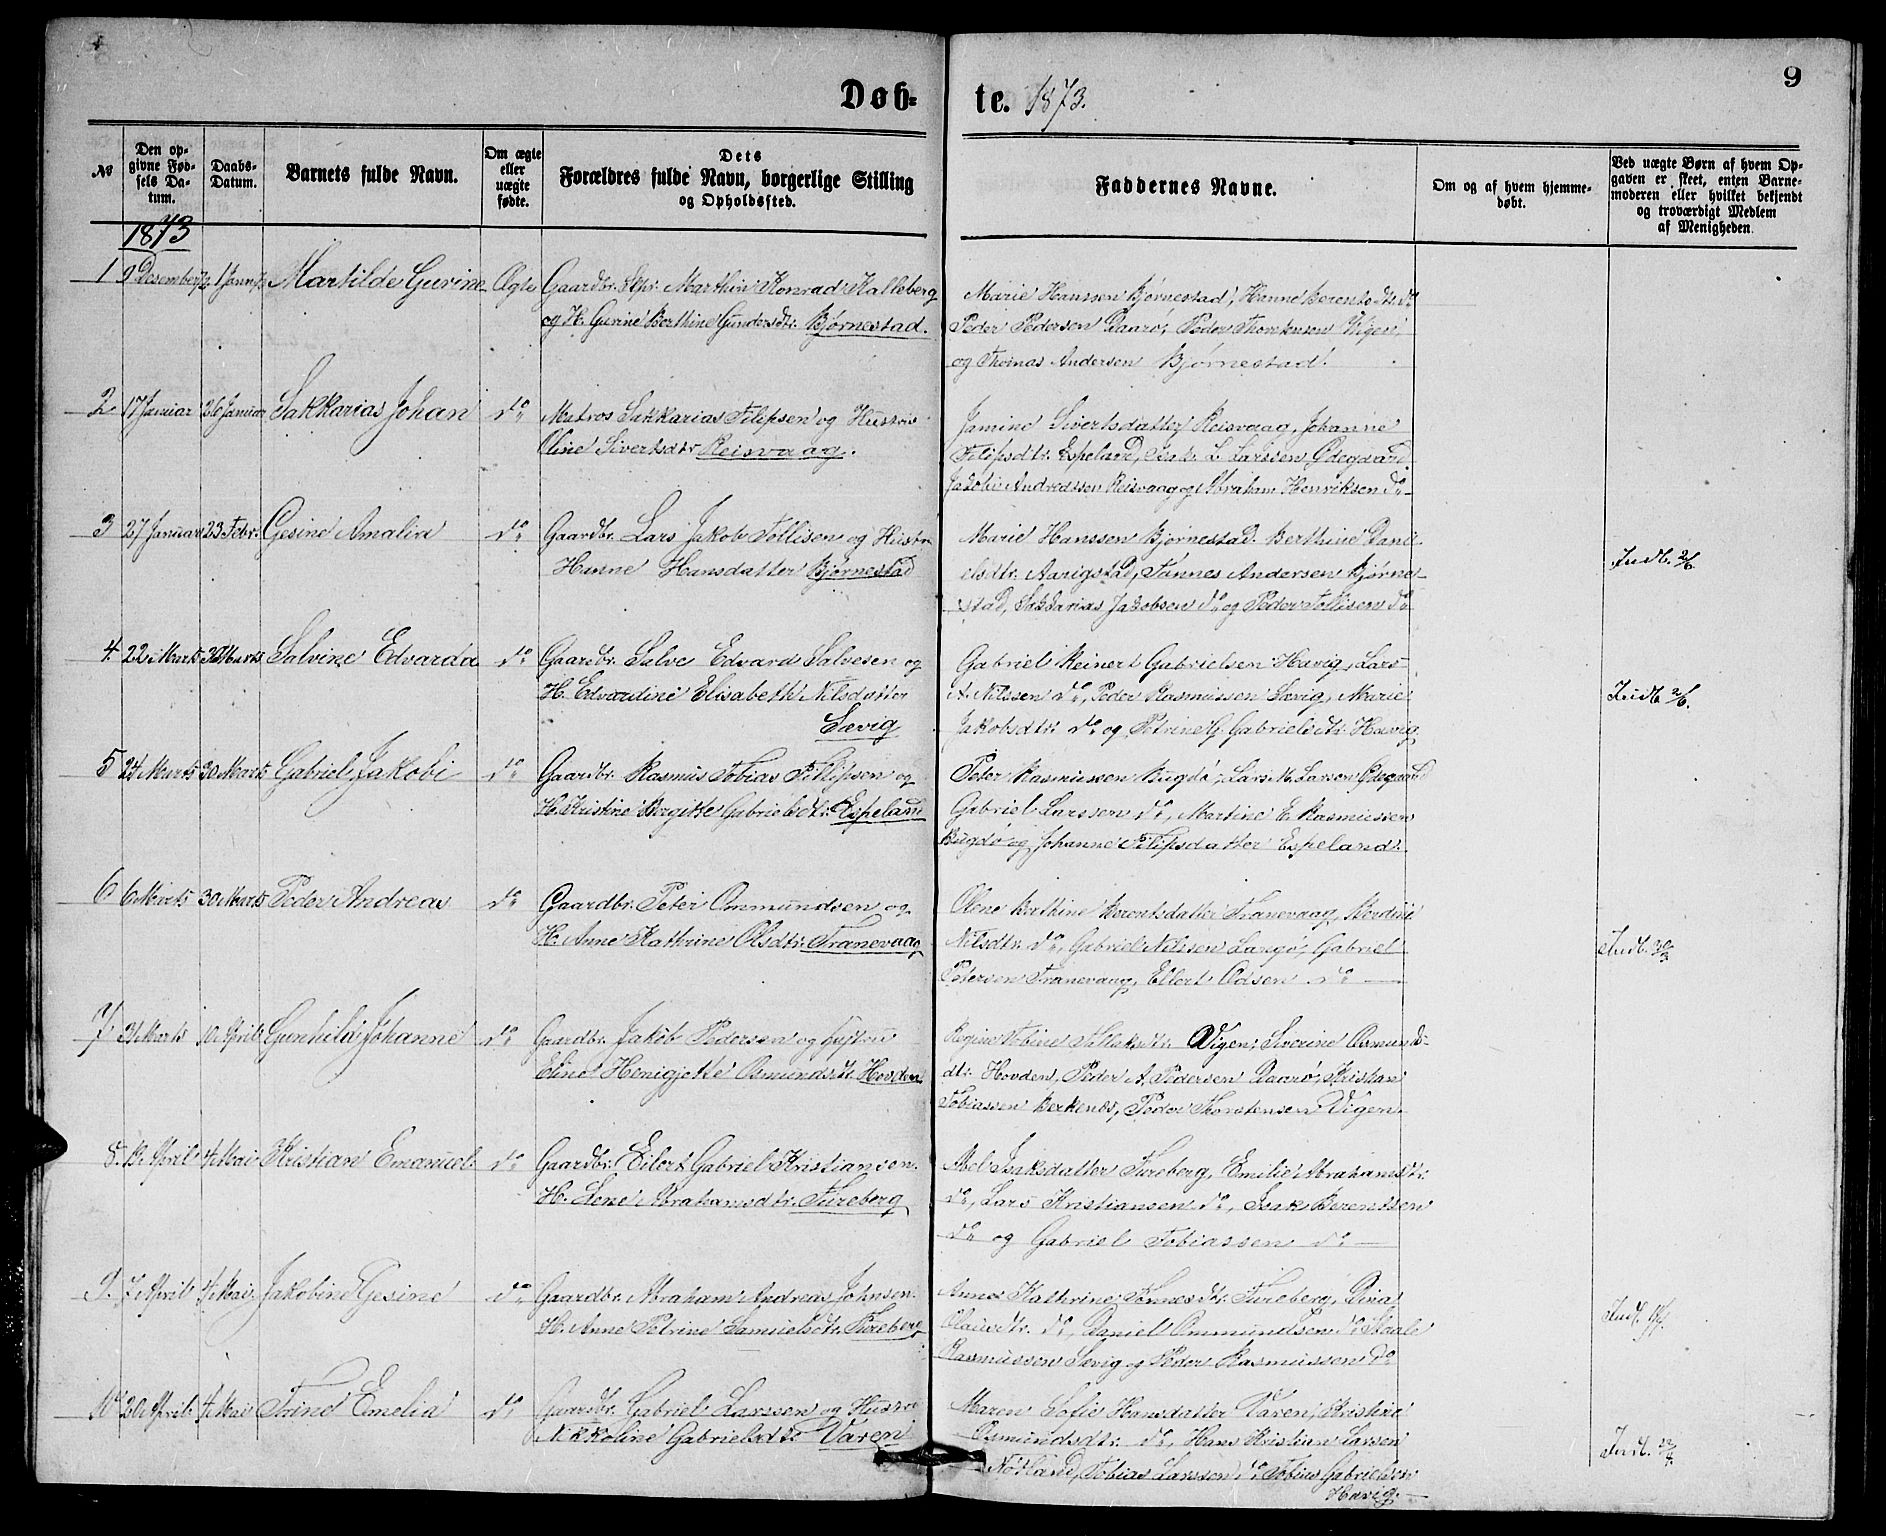 9
Døb-
te. 1873.
No
Den op-
givne Fød-
sels Da-
tum.
Daabs-
Datum.
Barnets fulde Navn.
Om ægte
eller
uægte
fødte.
Dets
Forældres fulde Navn, borgerlige Stilling
og Opholdssted.
Faddernes Navne.
Om og af hvem hjemme-
døbt.
Ved uægte Børn af hvem Op-
gaven er skeet, enten Barne-
moderen eller hvilket bekjendt
og troværdigt Medlem
af Menigheden.
1873
1 9 Desember 1 Janu Martilde Gurine Ægte Gaardbr. Skpr. Marthin Konrad Kalleberg
og H. Gurine Berthine Gundersdtr. Bjørnestad.
Marie Hanssen Bjørnestad, Hanne Berentsdtr. do
Peder Pedersen Daarø, Peder Thorstensen Vigen,
og Thomas Andersen Bjørnestad.
2 17 Januar 26 Januar Sakkarias Johan do Matros Sakkarias Filipsen og Hustru
Oline Sivertsdtr Reisvaag.
Jamine Sivertsdatter Reisvaag, Johanne
Filipsdtr. Espeland, Isak L. Larssen Ødegaard
Jakobi Andreassen Reisvaag og Abraham Henriksen do
3 27 Januar 23 Febr. Gesine Amalia do Gaardbr. Lars Jakob Tollisen og Hustr
Hanne Hansdatter Bjørnestad
Marie Hanssen Bjørnestad. Berthine Dani-
elsdtr. Aarigstad, Tønnes Andersen Bjørne-
stad, Sakkarias Jakobsen do og Peder Tollisen do
Indb. 2/6
4 22 Marts 30 Marts Salvine Edvarda do Gaardbr. Salve Edvard Salvesen og
H. Edvardine Elisabeth Nilsdatter
Sævig
Gabriel Reinert Gabrielsen Havig, Lars
A. Nilssen do, Peder Rasmussen Sævig, Marie
Jakobsdtr. do og Petrine G. Gabrielsdtr. Havig
Indb. 2/6.
5 24 Marts 30 Marts Gabriel Jakobi do Gaardbr. Rasmus Tobias Filipsen og
H. Kristine Bergitte Gabrielsdtr. Espeland
Peter Rasmussen Bugdø, Lars M. Larsen Ødegaard
Gabriel Larssen do, Martine E. Rasmussen
Bugdø og Johanne Filipsdatter Espeland.
6 6 Marts 30 Marts Peder Andreas do Gaardbr. Peter Ommundsen og
H. Anne Kathrine Olsdtr. Tranevaag
Olene Berthine Berentsdatter Tranevaag, Berdine
Nilsdtr. do, Gabriel Nilssen Langø, Gabriel
Petersen Tranevaag, Ellert Odsen do
Indb.
7 31 Marts 10 April Gunhild Johanne do Gaardbr. Jakob Pedersen og Hustru
Eline Henigjette Osmundsdtr. Hovden
Regine Tobine Vigen, Siverine Osmunds-
dtr. Hovden, Peder A. Pedersen Daarø, Kristian
Tobiassen Berkenes, Peder Thorstensen Vigen.
8. 13 April 4 Mai Kristian Emanuel do Gaardbr. Eilert Gabriel Kristiansen.
H. Lene Abrahamsdtr. Tureberg
Abel Isaksdatter Tureberg, Emilie Abrahamsdtr.
do, Lars Kristiansen do, Isak Berentsen
do og Gabriel Tobiassen do
9. 7 April 4 Mai. Jakobine Gesine do Gaardbr. Abraham Andreas Johnsen.
H. Anne Petrine Samuelsdtr. Tureberg
Anne Kathrine Tønnesdtr. Tureberg, Dina
Olausdtr. do, Daniel Ommundsen do
Rasmussen Sævig og Peder Rasmussen do
Indb.
10 20 April 4 Mai Trine Emelia do Gaardbr. Gabriel Larssen og Hustru
Nikkoline Gabrielsdtr Varen
Maren Sofie Hansdatter Varen, Kristine
Osmundsdtr. do, Hans Kristian Larsen
Nøtland, Tobias Larssen do Tobias Gabrielsen
Havig.
Indb.